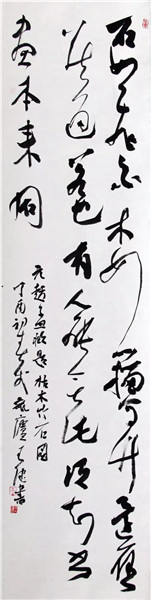 石如飞白木如籀写竹还应
八法通若也有人能会此须知书
画本来同
元赵孟頫题枯木竹石图
丁酉初
书